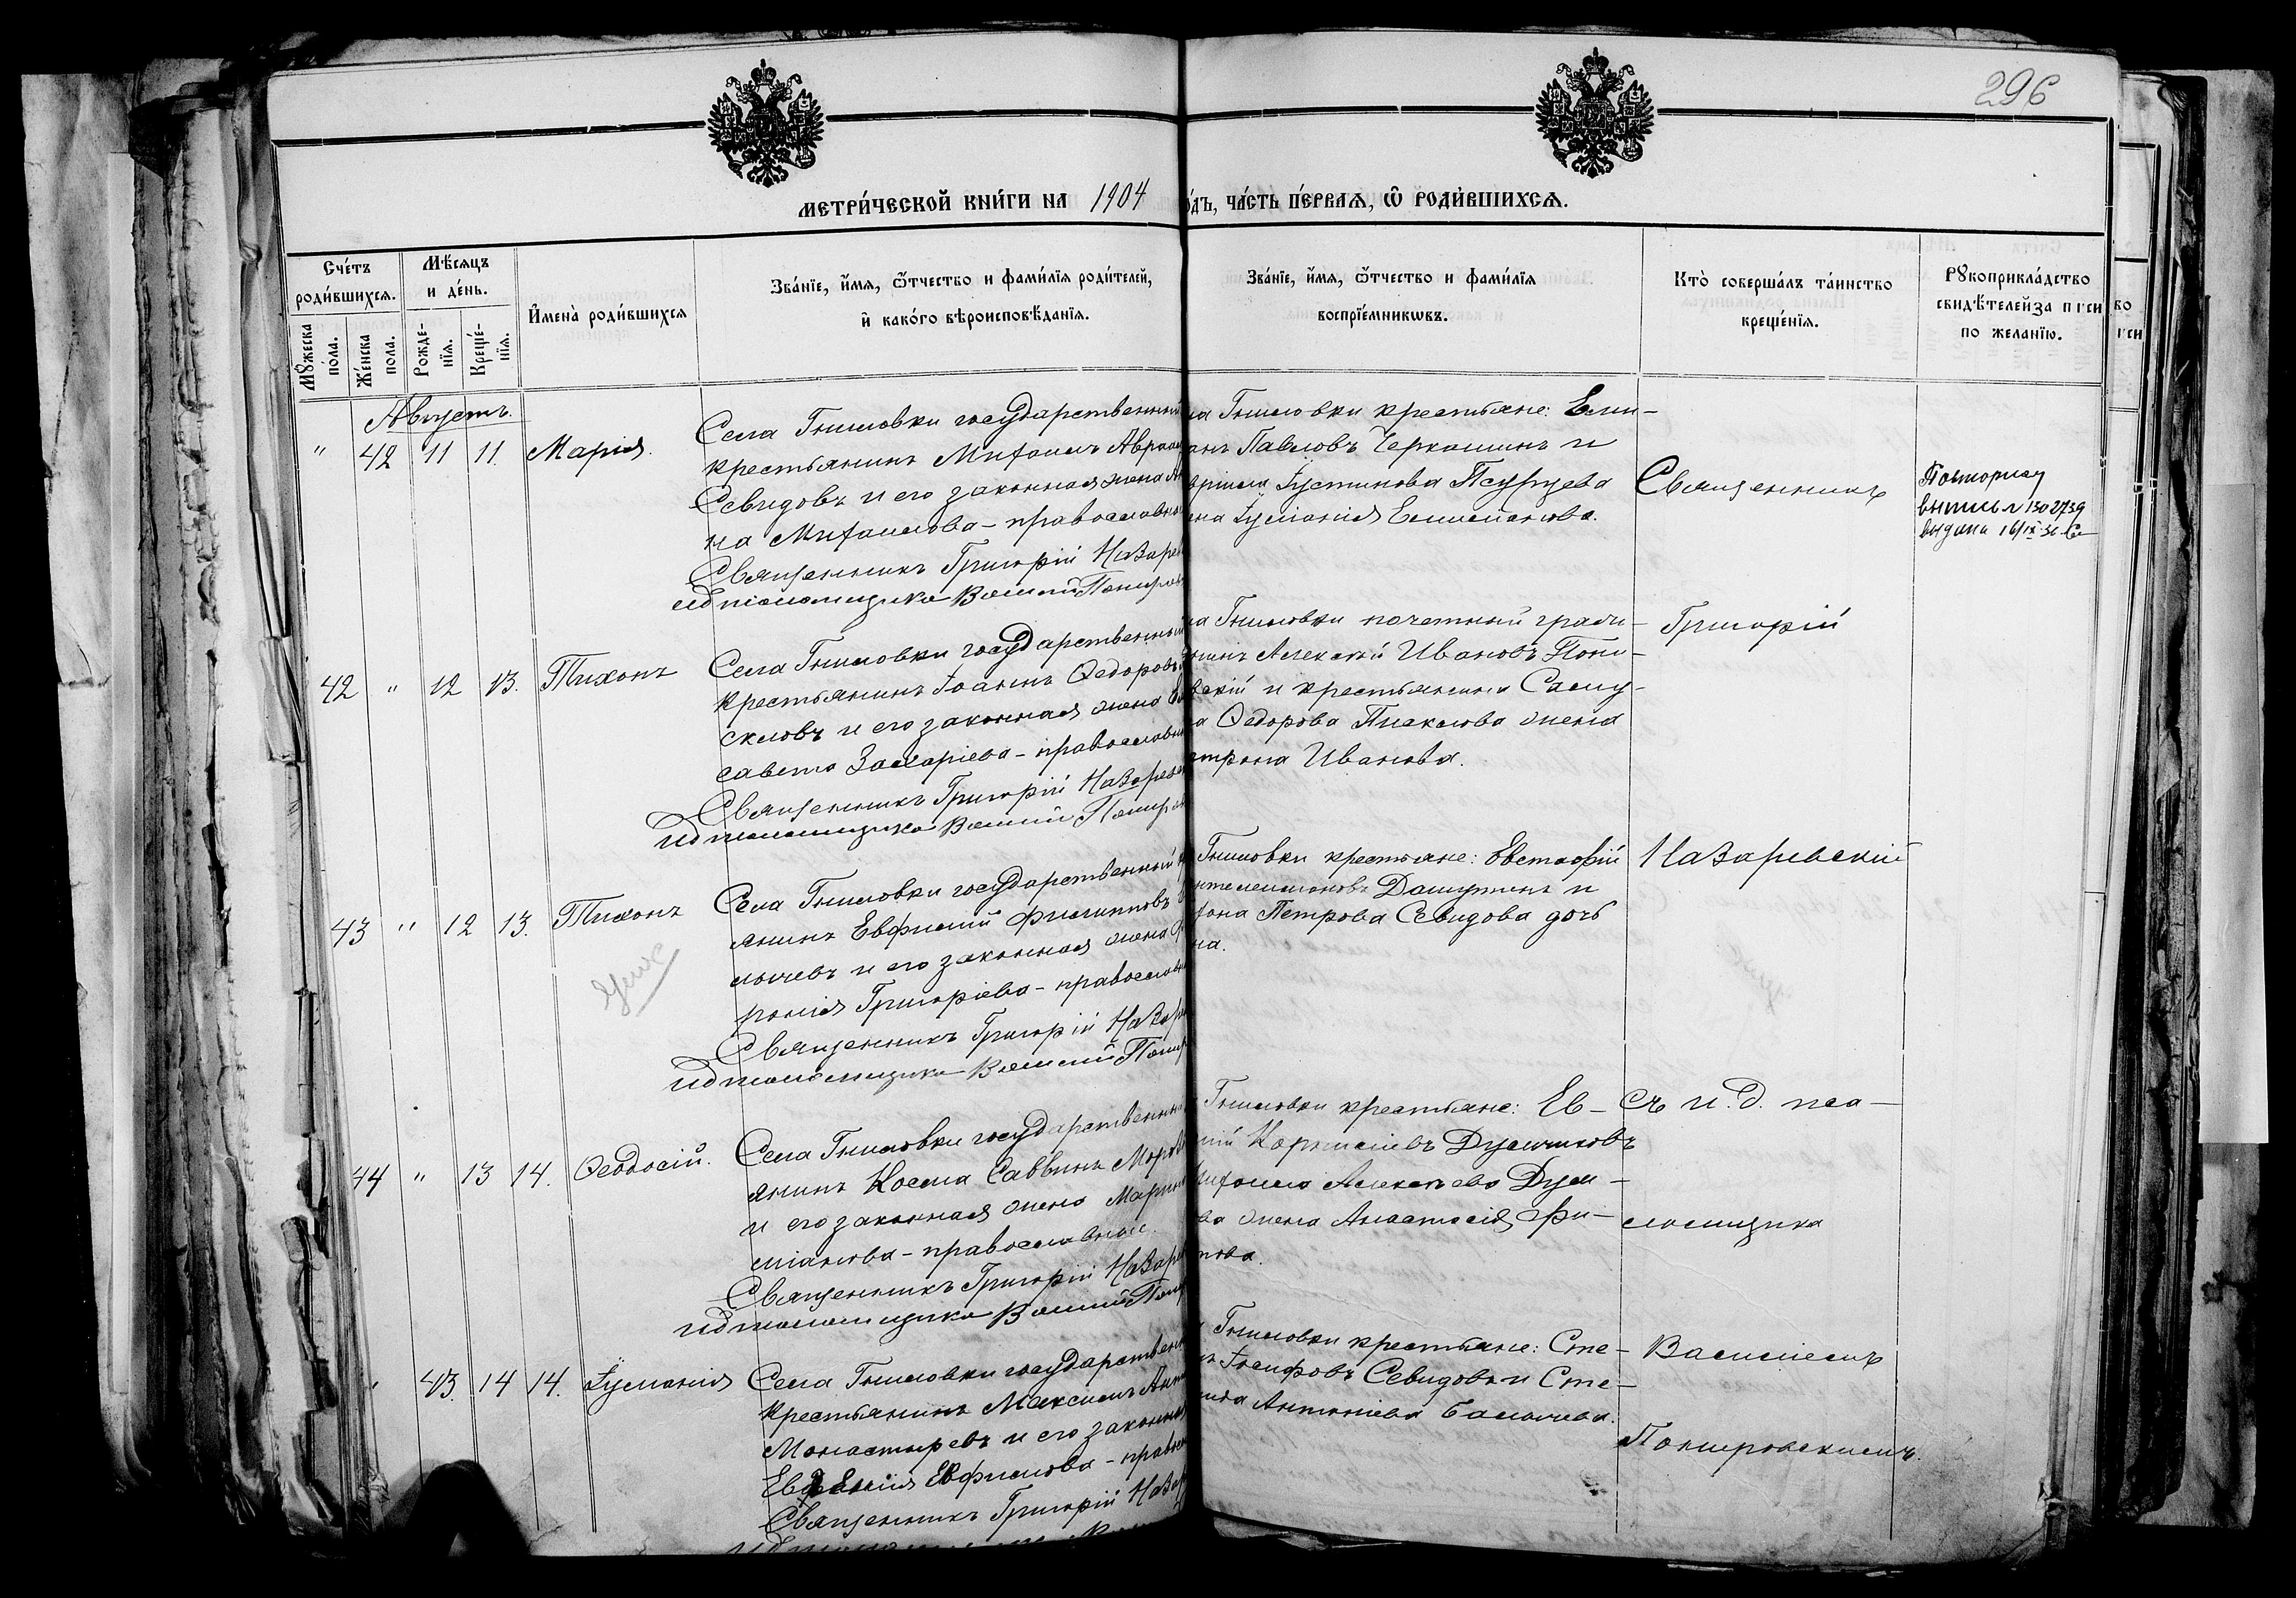 296
МЕТРИ́ЧЕСКОЙ КНИ́ГИ НА 1904
О́ДЪ, ЧА́СТЬ ПЕ́РВАѦ, Ѡ҆ РОДИ́ВШИХСѦ.
Сче́тъ роди́вшихсѧ.
Мѣ́сѧцъ и де́нь.
Мꙋ́жеска по́ла.
Же́нска пола.
Рожде-нїѧ.
Креще́-нїѧ.
И҆мена̀ роди́вшихсѧ
Зва́нїе, и҆́мѧ, ѻ҆́тчество и фами́лїѧ роди́телей,
и҆ како́гѡ вѣроисповѣ́данїѧ.
Зва́нїе, и҆́мѧ, ѻ҆́тчество и фами́лїѧ
воспрїе́мникѡвъ.
Кто̀ соверша́лъ та́инство
креще́нїѧ.
Рꙋкоприкла́дство
свидѣ́телей за писи
по желанїю.
Августъ.
" 42 11 11. Марія.
Села Гниловки государственный
крестьянинъ Михаилъ Авраам
Севидовъ и его законная жена Ан
на Михаилова - православны
Священникъ Григорій Назарев
ид псаломщика Василій Покров
ла Гниловки крестьяне: Еми-
анъ Павловъ Черкашинъ и
вріила Іустинова Псурцева
ена Іуліанія Емиліанова.
Священникъ
Повторная
выпись N 1302739
выдана 16/IX-36
42 " 12 13. Тихонъ
Села Гниловки государственный
крестьянинъ Іоаннъ Ѳедоровъ
скловъ и его законная жена Ели
савета Захаріева - православны
Священникъ Григорій Назарев
ид псаломщика Василій Покров
ла Гниловки почетный граж-
анинъ Алексѣй Ивановъ Поно-
вскій и крестьянина Саму-
ла Ѳедорова Писклова жена
атрона Иванова.
Григорій
43 " 12 13. Тихонъ
умс
Села Гниловки государственный к
янинъ Евфимій Филипповъ
лычевъ и его законная жена Ѳ
ронія Григоріева - православн
Священникъ Григорій Назар
ид псаломщика Василій Покр
Гниловки крестьяне: Евстафій
нтелеимоновъ Дашутинъ и
фона Петрова Севидова дочь
на.
Назаревскій
44 " 13 14. Ѳеодосій.
Села Гниловки государственны
янинъ Косма Саввинъ Моро
и его законная жена Марина
миліанова - православные.
Священникъ Григорій Назар
ид псаломщика Василій Пок
Гниловки крестьяне: Ев-
мій Корниліевъ Дуличковъ
Михаила Алексѣева Дули-
ва жена Анастасія Фи-
пова.
Съ и. д. пса-
ломщика
" 43. 14 14. Іуліанія
Села Гниловки государствен
крестьянинъ Максимъ Ан
Монастыревъ и его законная
Евгенія Евфимова - правосл
Священникъ Григорій Наза
Гниловки крестьяне: Сте-
нъ Іосифовъ Севидовъ и Сте-
нида Антоніева Балычева.
Василіемъ
Покировскимъ.